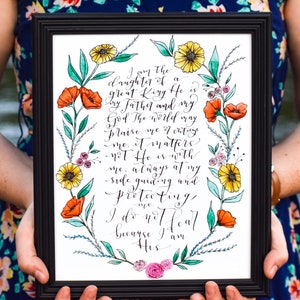 I am the
daughter of a
great King He is
my Father and my
God The world may
praise me or curse
me it matters
not He is with
me, always at my
side guiding and
protecting
me
I do not fear
because I am
His